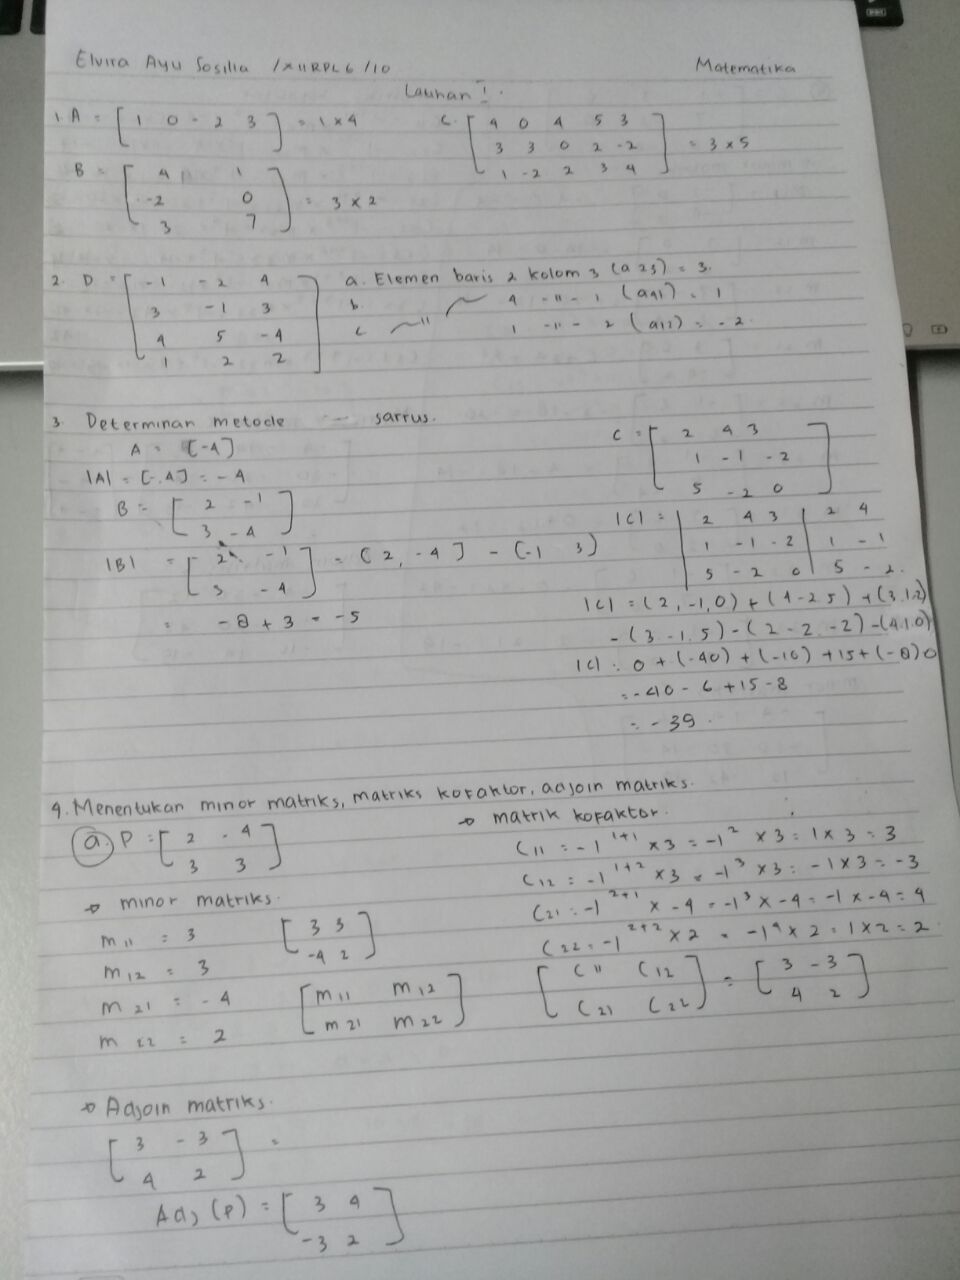 Elvira Ayu Sosilia /XII RPL 6 /10
Matematika
Latihan !.
1. A = [ 1 0 -2 3 ] = 1 x 4
B = [ 4 1
-2 0
3 7 ] = 3 x 2
C. [ 4 0 4 5 3
3 3 0 2 -2
1 -2 2 3 4 ] = 3 x 5
2. D = [ -1 -2 4
3 -1 3
4 5 -4
1 2 2 ]
a. Elemen baris 2 kolom 3 (a 23) = 3.
b. 4 -"- 1 (a41) = 1
c -"- 1 -"- 2 (a12) = -2.
3. Determinan metode -- sarrus.
A = [-4]
|A| = [-4] = -4
B = [ 2 -1
3 -4 ]
|B| = [ 2 -1
3 -4 ] = (2, -4] - (-1 3)
= -8 + 3 = -5
C = [ 2 4 3
1 -1 -2
5 -2 0 ]
|C| = | 2 4 3 | 2 4
1 -1 -2 | 1 -1
5 -2 0 | 5 -2.
|C| = (2, -1,0) + (4-2 5) + (3.1.2)
- (3 -1. 5) - (2 -2. -2) - (4.1.0)
|C| : 0 + (-40) + (-16) + 15 + (-8) 0
= -40 - 6 + 15 - 8
= -39.
4. Menentukan minor matriks, matriks kofaktor, adjoin matriks.
a. P = [ 2 -4
3 3 ]
→ minor matriks.
m11 = 3
m12 = 3
m21 = -4
m22 = 2
[ 3 3
-4 2 ]
[ m11 m12
m21 m22 ]
→ matrik kofaktor.
C11 = -1 1+1 x 3 = -1² x 3 = 1 x 3 = 3
C12 = -1 1+2 x 3 = -1³ x 3 = -1 x 3 = -3
C21 = -1 2+1 x -4 = -1³ x -4 = -1 x -4 = 4
C22 = -1 2+2 x 2 = -1⁴ x 2 = 1 x 2 = 2.
[ C11 C12
C21 C22 ] = [ 3 -3
4 2 ]
→ Adjoin matriks.
[ 3 -3
4 2 ] =
Adj (P) = [ 3 4
-3 2 ]